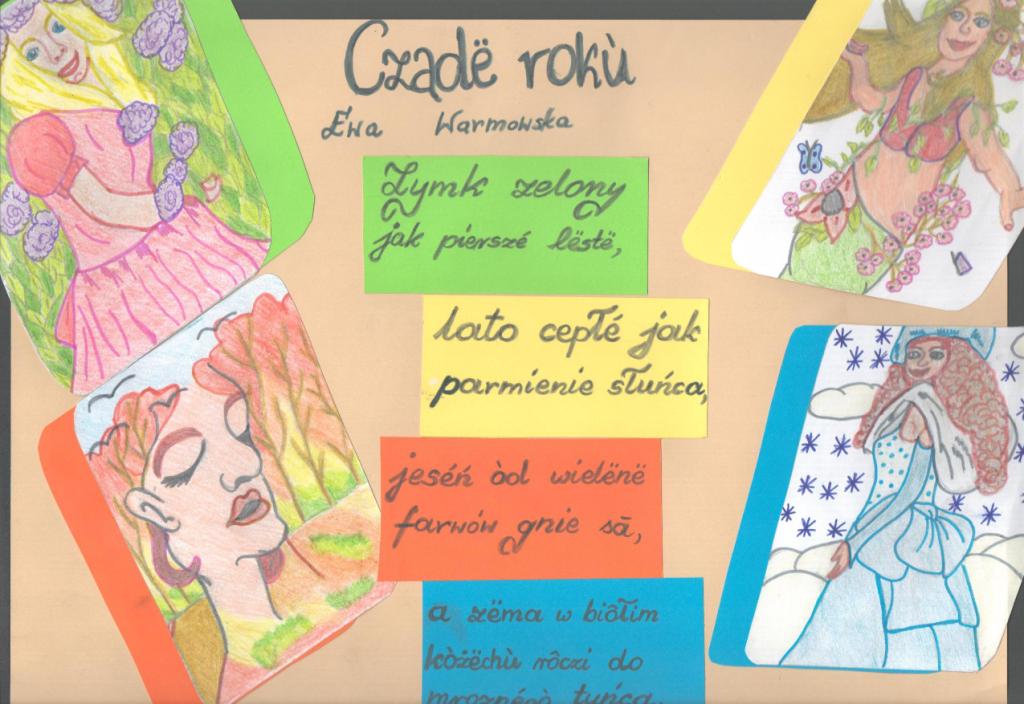 Cządë rokù
Ewa Warmowska
Zymk zelony
jak pierszé lëstë,
lato cepłé jak
parmienie słuńca,
jeséń òd wielënë
farwów gnie sã,
a zëma w biôłim
kòżëchù rôczi do
mroznégò tuńca.